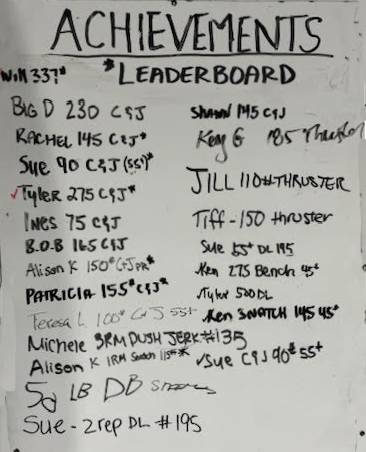 ACHIEVEMENTS
Will 337#
*LEADERBOARD
BIG D 230 C&J
RACHEL 145 C&J*
Sue 90 C&J (55+)*
✓Tyler 275 C&J*
INES 75 C&J
B.O.B 165 C&J
Alison K 150# C+J PR*
PATRICIA 155# C&J*
Teresa L 100# C+J 55+
Michele 3RM PUSH JERK #135
Alison K 1RM Snatch 115#*
50 LB DB
Sue - 2 rep DL #195
Shawn 145 C&J
185 Thruster
JILL 110# THRUSTER
Tiff - 150 thruster
Sue 55+ DL 195
✓Ken 275 Bench 45+
✓Tyler 500 DL
✓Ken SNATCH 145 45+
✓Sue C&J 90# 55+